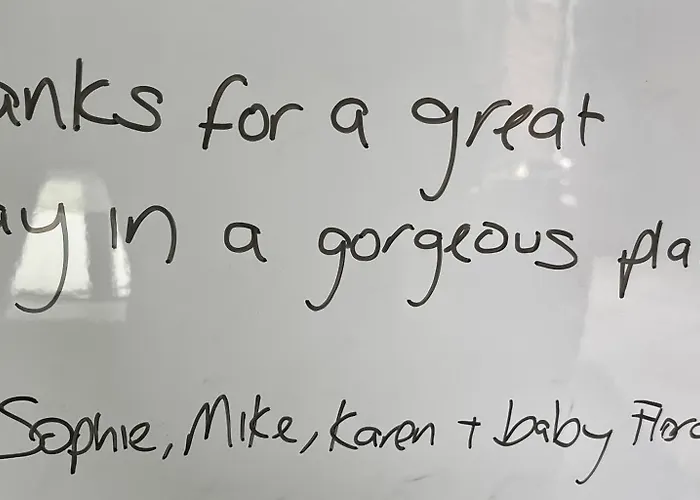 anks for a great
ay in a gorgeous pla
Sophie, Mike, Karen + baby Flora